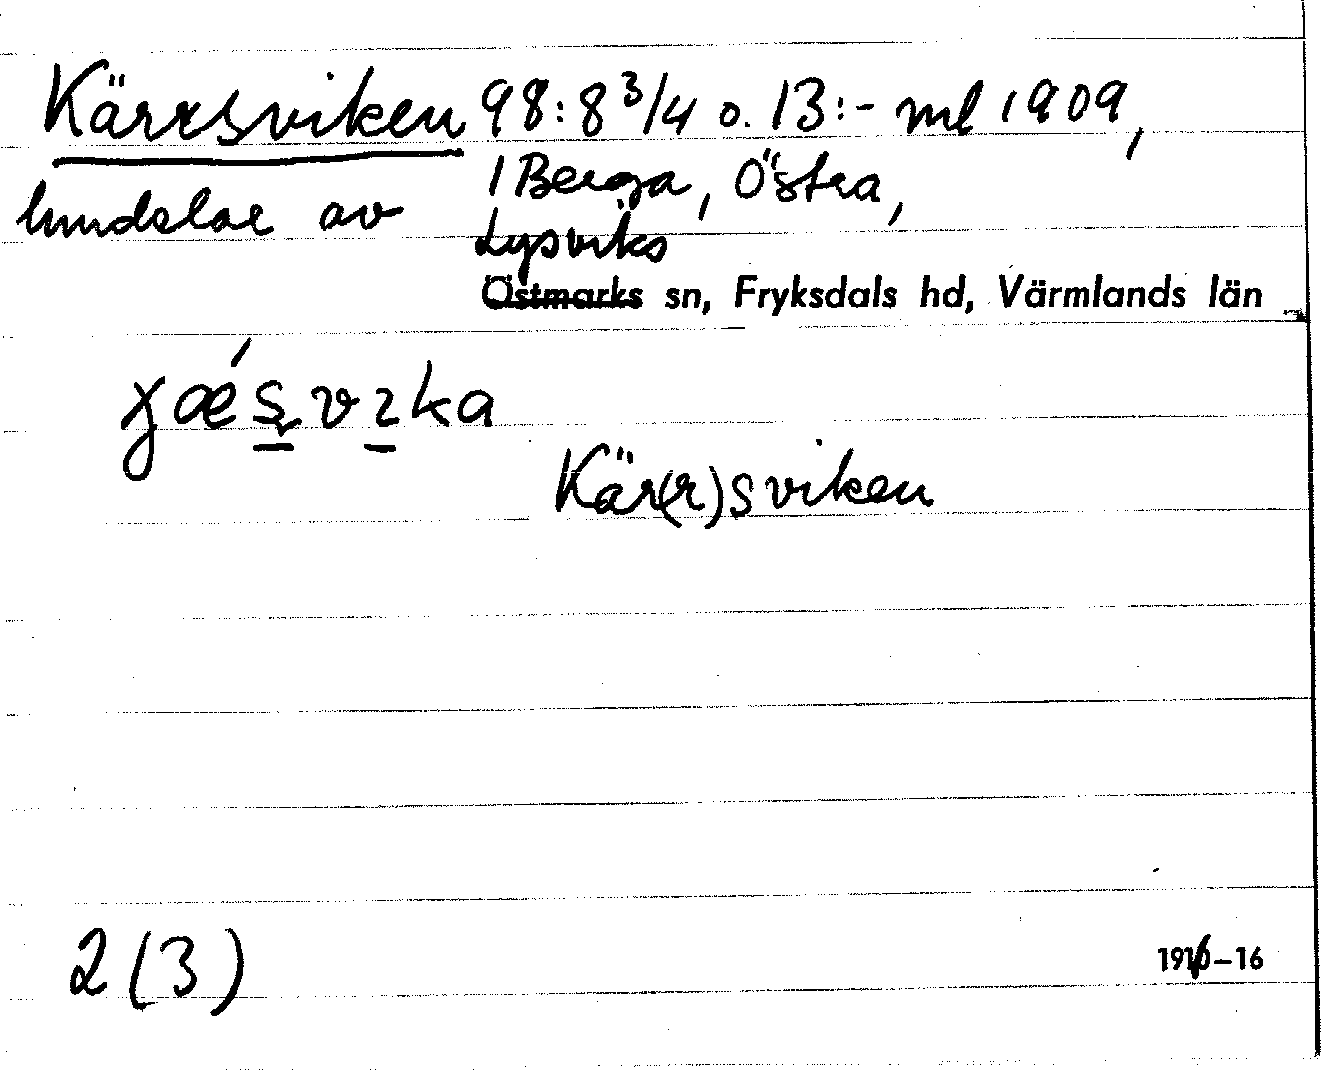 Kärrsviken 98:8 3/4 o. 13:- ml 1909,
lundelar av 1 Berga, Östra,
Lysviks
Östmarks sn, Fryksdals hd, Värmlands län
Kär(r)sviken
2(3)
-16